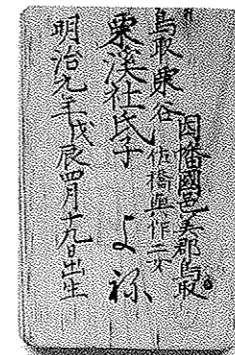 因幡國邑美郡鳥取
鳥取東谷 佐橋與作二女
栗溪社氏子 よ祢
明治元年戊辰四月十九日出生